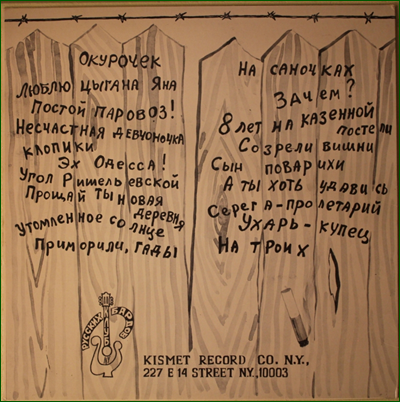 Окурочек
Люблю цыгана Яна
Постой паровоз!
Несчастная девчоночка
клопики
Эх Одесса!
Угол Ришельевской
Прощай ты новая
деревня
утомленное солнце
Приморили, гады
На саночках
Зачем?
8 лет на казенной
постели
Созрели вишни
Сын поварихи
А ты хоть удавись
Серега-пролетарий
Ухарь-купец
На троих
РУССКИХ КЛУБ БАРДОВ
KISMET RECORD CO. N.Y.,
227 E 14 STREET NY.,10003